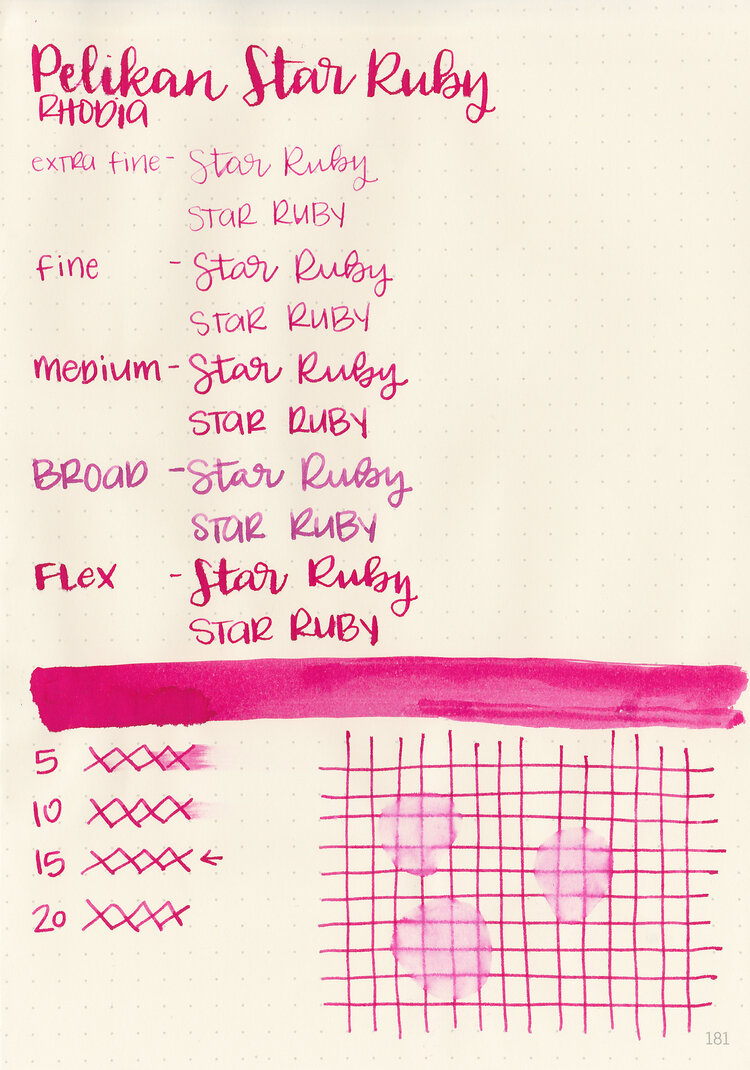 Pelikan Star Ruby
RHODIA
extra fine - Star Ruby
STAR RUBY
fine - Star Ruby
STAR RUBY
medium - Star Ruby
STAR RUBY
BROAD - Star Ruby
STAR RUBY
Flex - Star Ruby
STAR RUBY
5 XXXX
10 XXXX
15 XXXX ←
20 XXXX
181